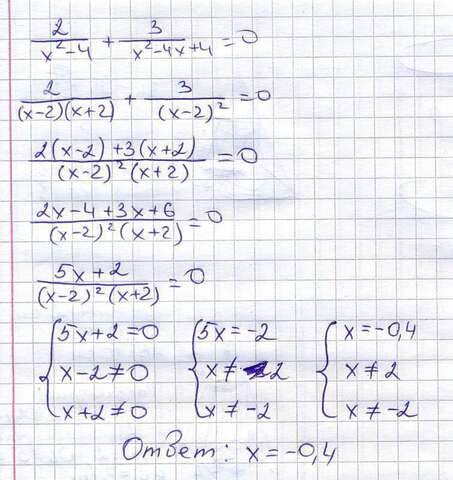 2/(x²-4) + 3/(x²-4x+4) = 0
2/((x-2)(x+2)) + 3/(x-2)² = 0
(2(x-2)+3(x+2))/((x-2)²(x+2)) = 0
(2x-4+3x+6)/((x-2)²(x+2)) = 0
(5x+2)/((x-2)²(x+2)) = 0
{5x+2=0 {5x=-2 {x=-0,4
x-2≠0 x≠2 x≠2
x+2≠0 x≠-2 x≠-2
Ответ: x=-0,4